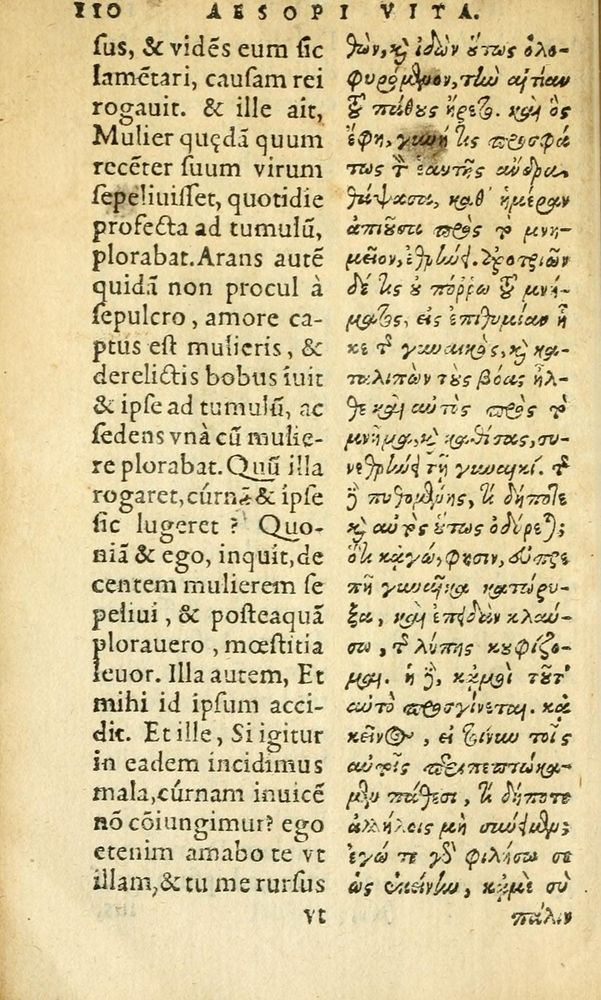 110 AESOPI VITA.
sus, & vidēs eum sic
lamētari, causam rei
rogauit. & ille ait,
Mulier quędā quum
recēter suum virum
sepeliuisset, quotidie
profecta ad tumulū,
plorabat. Arans autē
quidā non procul à
sepulcro, amore ca-
ptus est mulieris, &
derelictis bobus iuit
& ipse ad tumulū, ac
sedens vnà cū mulie-
re plorabat. Quū illa
rogaret, cúrnā & ipse
sic lugeret? Quo-
niā & ego, inquit, de
centem mulierem se
peliui, & posteaquā
plorauero, mœstitia
leuor. Illa autem, Et
mihi id ipsum acci-
dit. Et ille, Si igitur
in eadem incidimus
mala, cúrnam inuicē
nō cōiungimur? ego
etenim amabo te vt
illam, & tu me rursus
vt
θὼν, κ̀ ἰδὼν ὅτως ὀλο-
φυρόμθμον, τίω αἰτίαν
τ͂ πάθους ἤρετο. καὶ ὃς
ἔφη, γυνή τις προσφά
τως τ̀ ἑαυτῆς ἄνδρα
θάψασα, καθ' ἡμέραν
ἀπιοῦσα πρὸς τὸ μνη-
μεῖον, ἐθρίωει. ἀροτριῶν
δέ τις οὐ πόῤῥω τοῦ μνή-
ματος, εἰς ἐπιθυμίαν ἧ
κε τ͂ γυναικὸς, κ̀ κα-
ταλιπὼν τοὺς βόας ἦλ-
θε καὶ αὐτὸς πρὸς τὸ
μνῆμα, κ̀ καθίσας, συ-
νεθρίωει τῇ γυναικί. τ͂
δὲ πυθομθμης, τί δήποτε
κ̀ αὐτὸς οὕτως ὀδύρετ;
ὅτι κἀγώ, φησιν, εὐπρε
πῆ γυναῖκα κατώρυ-
ξα, καὶ ἐπειδὰν κλαύ-
σω, τ͂ λύπης κουφίζο-
μαι. ἡ δὲ, κἀμοὶ τοῦτ'
αὐτὸ προσγίνεται. κἀ
κεῖνος, εἰ τοίνυν τοῖς
αὐτοῖς περιπεπτώκα-
μθμ πάθεσι, τί δήποτε
ἀλλήλοις μὴ σύνιμθμ;
ἐγώ τε γδ φιλήσω σε
ὡς ἐκείνην, κἀμὲ σὺ
πάλιν